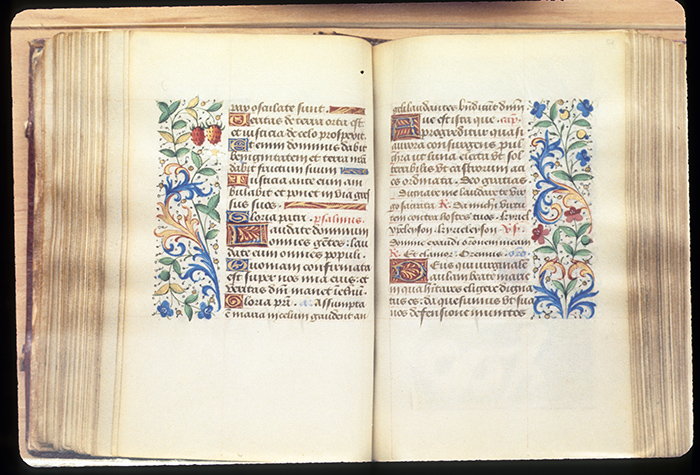 pax osculate sunt.
Veritas de terra orta est
et iusticia de celo prospexit.
Etenim dominus dabit
benignitatem et terra nrā
dabit fructum suum
Iusticia ante eum am
bulabit et ponet in via gres
sus suos
Gloria patri. psalmus.
Laudate dominum
omnes gētes: lau
date eum omnes populi.
Quoniam confirmata
est super nos mīa eius: et
veritas dñi manet
Gloria pri. a. Assumpta
ē maria in celum gaudent an
geli laudantes bñdicunt dñm
Que est ista que cap.
progreditur quasi
aurora consurgens pul
chra ut luna electa ut sol
terribilis ut castrorum aci
es ordinata. Deo gratias.
Dignare me laudare te vir
go sacrata R. Da michi virtu
tem contra hostes tuos. kyriel
xpeleyson. kyrieleyson. Vs
Domine exaudi oronem meam
R. Et clamor. Oremus. oro
Deus qui virginale
aulam beate marie
in qua hitares eligere digna
tus es: da quesumus ut sua
nos defensione munitos